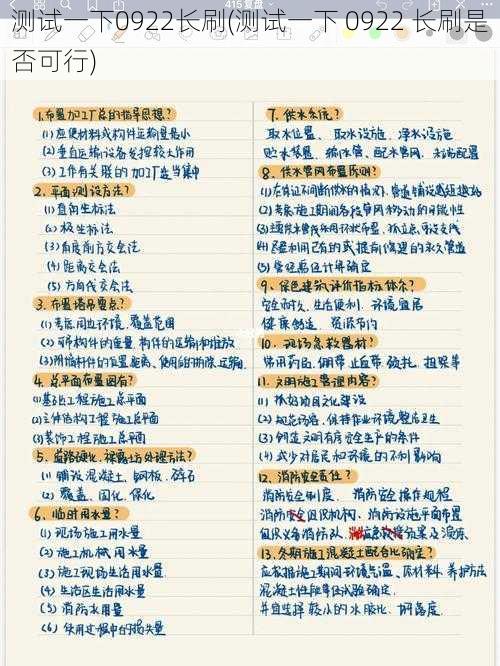 测试一下0922长刷(测试一下 0922 长刷是
否可行)
1.布置加工厂总的指导思想?
(1)应使材料或构件运输量最小
(2)垂直运输设备发挥较大作用
(3)工作有关联的加工厂适当集中
2.平面测设方法?
(1)直角坐标法
(2)极坐标法
(3)角度前方交会法
(4)距离交会法
(5)方向线交会法
3.布置塔吊要点?
(1)考虑周边环境、覆盖范围
(2)可吊构件的重量、构件的运输和堆放
(3)附墙杆件的位置、距离、使用后的拆除、运输
4.总平面布置图有?
(1)基础工程施工总平面
(2)主体结构工程施工总平面
(3)装饰工程施工总平面
5.道路硬化、裸露土方处理方法?
(1)铺设混凝土、钢板、碎石
(2)覆盖、固化、绿化
6.临时用水量?
(1)现场施工用水量
(2)施工机械用水量
(3)施工现场生活用水量
(4)生活区生活用水量
(5)消防水用量
(6)使用过程中的损失量
7.供水系统?
取水位置、取水设施、净水设施
贮水装置、输水管、配水管网、末端配置
8.供水管网布置原则?
(1)在保证不间断供水的情况下,管道铺设越短越好
(2)考虑施工期间各段管网移动的可能性
(3)主要供水管线采用环状布置,孤立点可设支线
(4)尽量利用已有的或提前修建的永久管道
(5)管径要经计算确定
9.绿色建筑评价指标体系?
安全耐久、生活便利、环境宜居
健康舒适、资源节约
10.现场急救器材?
常用药品、绷带、止血带、颈托、担架等
11.文明施工管理内容?
(1)抓好项目文化建设
(2)规范场容,保持作业环境整洁卫生
(3)创造文明有序安全生产的条件
(4)减少对居民和环境的不利影响
12.消防安全责任?
消防安全制度、消防安全操作规程
消防安全组织机构、消防设施平面布置
组织义务消防队、
13.冬期施工混凝土配合比确定?
应根据施工期间环境气温、原材料、养护方法
混凝土性能等经试验确定.
并宜选择较小的水胶比、坍落度.